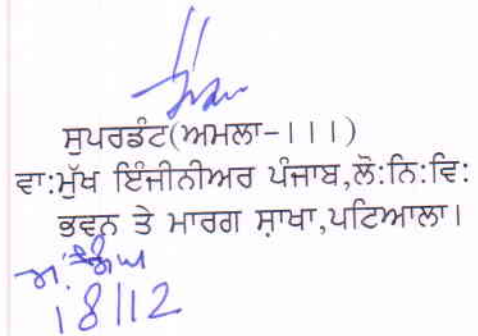 ਸੁਪਰਡੰਟ(ਅਮਲਾ-।।।)
ਵਾ:ਮੁੱਖ ਇੰਜੀਨੀਅਰ ਪੰਜਾਬ,ਲੋ:ਨਿ:ਵਿ:
ਭਵਨ ਤੇ ਮਾਰਗ ਸ਼ਾਖਾ,ਪਟਿਆਲਾ।
18/12